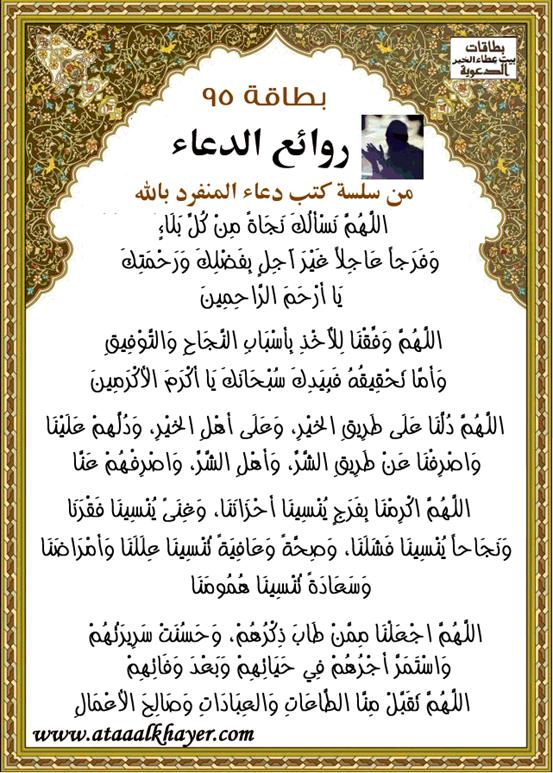 بطاقات
بيت عطاء الخير
الدعوية
بطاقة ٩٥
روائع الدعاء
من سلسة كتب دعاء المنفرد بالله
اللَّهُمَّ نَسْأَلُكَ نَجَاةً مِنْ كُلِّ بَلَاءٍ
وَفَرَجاً عَاجِلاً غَيْرَ آجِلٍ بِفَضْلِكَ وَرَحْمَتِكَ
يَا أَرْحَمَ الرَّاحِمِينَ
اللَّهُمَّ وَفِّقْنَا لِلْأَخْذِ بِأَسْبَابِ النَّجَاحِ وَالتَّوْفِيقِ
وَأَمَّا تَحْقِيقُهُ فَبِيَدِكَ سُبْحَانَكَ يَا أَكْرَمَ الْأَكْرَمِينَ
اللَّهُمَّ دُلَّنَا عَلَى طَرِيقِ الخَيْرِ، وَعَلَى أَهْلِ الخَيْرِ، وَدُلَّهُمْ عَلَيْنَا
وَاصْرِفْنَا عَنْ طَرِيقِ الشَّرِّ، وَأَهْلِ الشَّرِّ، وَاصْرِفْهُمْ عَنَّا
اللَّهُمَّ أَكْرِمْنَا بِفَرَجٍ يُنْسِينَا أَحْزَانَنَا، وَغِنَىً يُنْسِينَا فَقْرَنَا
وَنَجَاحاً يُنْسِينَا فَشَلَنَا، وَصِحَّةً وَعَافِيَةً تُنْسِينَا عِلَلَنَا وَأَمْرَاضَنَا
وَسَعَادَةً تُنْسِينَا هُمُومَنَا
اللَّهُمَّ اجْعَلْنَا مِمَّنْ طَابَ ذِكْرُهُمْ، وَحَسُنَتْ سَرِيرَتُهُمْ
وَاسْتَمَرَّ أَجْرُهُمْ فِي حَيَاتِهِمْ وَبَعْدَ وَفَاتِهِمْ
اللَّهُمَّ تَقَبَّلْ مِنَّا الطَّاعَاتِ وَالعِبَادَاتِ وَصَالِحَ الأَعْمَالِ
www.ataaalkhayer.com